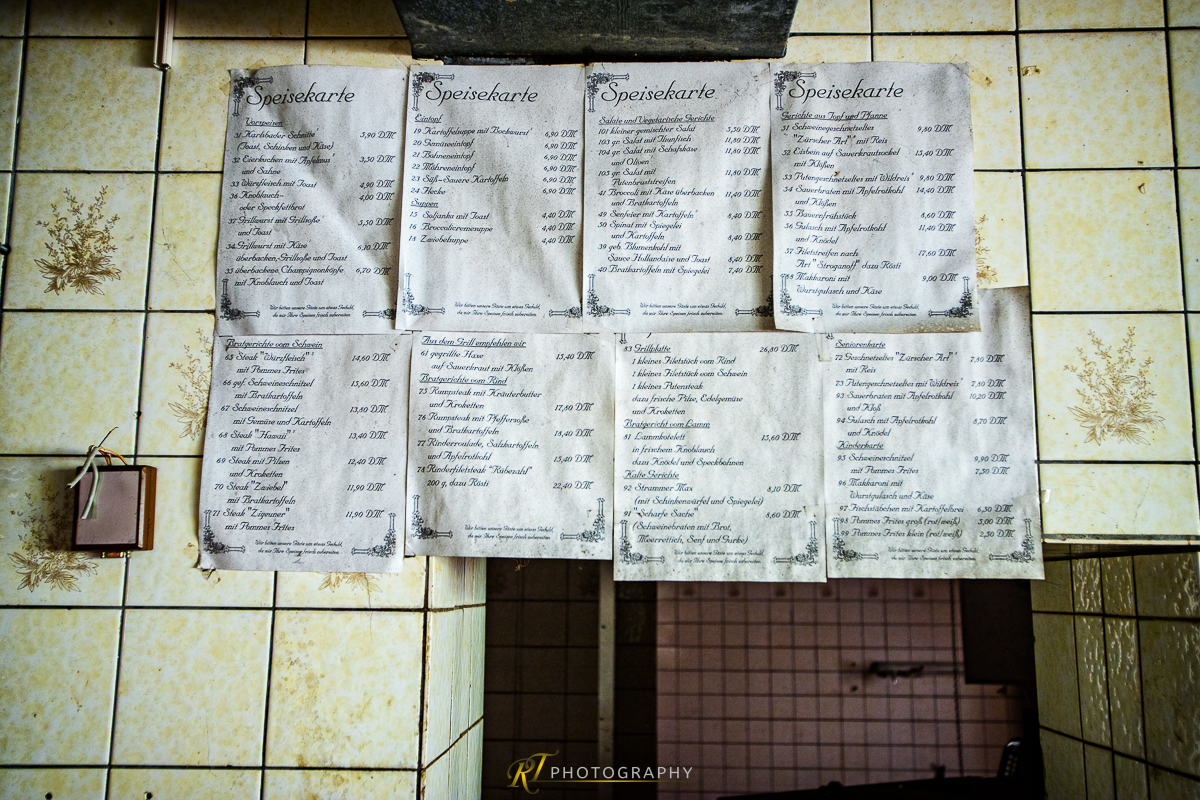 Speisekarte
Vorspeisen
31 Karlsbader Schnitte 5,90 DM
(Toast, Schinken und Käse)
32 Eierkuchen mit Apfelmus 3,50 DM
und Sahne
33 Würzfleisch mit Toast 4,90 DM
36 Knoblauch- 4,00 DM
oder Speckfettbrot
37 Grillwurst mit Grillsoße 5,50 DM
und Toast
34 Grillwurst mit Käse 6,30 DM
überbacken, Grillsoße und Toast
35 überbackene Champignonköpfe 6,70 DM
mit Knoblauch und Toast
Wir bitten unsere Gäste um etwas Geduld,
da wir Ihre Speisen frisch zubereiten.
Speisekarte
Eintopf
19 Kartoffelsuppe mit Bockwurst 6,90 DM
20 Gemüseeintopf 6,90 DM
21 Bohneneintopf 6,90 DM
22 Möhreneintopf 6,90 DM
23 Süß-Sauere Kartoffeln 6,90 DM
24 Flecke 6,90 DM
Suppen
15 Soljanka mit Toast 4,40 DM
16 Broccolicremesuppe 4,40 DM
18 Zwiebelsuppe 4,40 DM
Wir bitten unsere Gäste um etwas Geduld,
da wir Ihre Speisen frisch zubereiten.
Speisekarte
Salate und Vegetarische Gerichte
101 kleiner gemischter Salat 5,50 DM
103 gr. Salat mit Thunfisch 11,80 DM
104 gr. Salat mit Schafskäse 11,80 DM
und Oliven
105 gr. Salat mit 11,80 DM
Putenbruststreifen
41 Broccoli mit Käse überbacken 11,40 DM
und Bratkartoffeln
49 Senfeier mit Kartoffeln 8,40 DM
50 Spinat mit Spiegelei
und Kartoffeln 8,40 DM
39 geb. Blumenkohl mit
Sauce Hollandaise und Toast 8,40 DM
40 Bratkartoffeln mit Spiegelei 7,40 DM
Wir bitten unsere Gäste um etwas Geduld,
da wir Ihre Speisen frisch zubereiten.
Speisekarte
Gerichte aus Topf und Pfanne
51 Schweinegeschnetzeltes 9,80 DM
"Zürscher Art" mit Reis
52 Eisbein auf Sauerkrautsockel 13,40 DM
mit Klößen
53 Putengeschnetzeltes mit Wildreis 9,80 DM
54 Sauerbraten mit Apfelrotkohl 14,40 DM
und Klößen
55 Bauernfrühstück 8,60 DM
56 Gulasch mit Apfelrotkohl 11,40 DM
und Knödel
57 Filetstreifen nach 17,60 DM
Art "Stroganoff" dazu Rösti
58 Makkaroni mit 9,00 DM
Wurstgulasch und Käse
Wir bitten unsere Gäste um etwas Geduld,
da wir Ihre Speisen frisch zubereiten.
Bratgerichte vom Schwein
65 Steak "Würzfleisch" 14,60 DM
mit Pommes Frites
66 gef. Schweineschnitzel 15,60 DM
mit Bratkartoffeln
67 Schweineschnitzel 13,80 DM
mit Gemüse und Kartoffeln
68 Steak "Hawaii" 13,40 DM
mit Pommes Frites
69 Steak mit Pilzen 12,40 DM
und Kroketten
70 Steak "Zwiebel" 11,90 DM
mit Bratkartoffeln
71 Steak "Zigeuner" 11,90 DM
mit Pommes Frites
Wir bitten unsere Gäste um etwas Geduld,
da wir Ihre Speisen frisch zubereiten.
Aus dem Grill empfehlen wir
61 gegrillte Haxe 15,40 DM
auf Sauerkraut mit Klößen
Bratgerichte vom Rind
75 Rumpsteak mit Kräuterbutter
und Kroketten 17,80 DM
76 Rumpsteak mit Pfeffersoße
und Bratkartoffeln 18,40 DM
77 Rinderroulade, Salzkartoffeln
und Apfelrotkohl 13,40 DM
78 Rinderfiletsteak "Rübezahl"
200 g, dazu Rösti 22,40 DM
Wir bitten unsere Gäste um etwas Geduld,
da wir Ihre Speisen frisch zubereiten.
83 Grillplatte 26,80 DM
1 kleines Filetstück vom Rind
1 kleines Filetstück vom Schwein
1 kleines Putensteak
dazu frische Pilze, Edelgemüse
und Kroketten
Bratgericht vom Lamm
81 Lammkotelett 15,60 DM
in frischem Knoblauch
dazu Knödel und Speckbohnen
Kalte Gerichte
92 Strammer Max 8,10 DM
(mit Schinkenwürfel und Spiegelei)
91 "Scharfe Sache" 8,60 DM
(Schweinebraten mit Brot,
Meerrettich, Senf und Gurke)
Wir bitten unsere Gäste um etwas Geduld,
da wir Ihre Speisen frisch zubereiten.
Seniorenkarte
72 Geschnetzeltes "Zürscher Art" 7,80 DM
mit Reis
73 Putengeschnetzeltes mit Wildreis 7,80 DM
93 Sauerbraten mit Apfelrotkohl 10,20 DM
und Kloß
94 Gulasch mit Apfelrotkohl 8,70 DM
und Knödel
Kinderkarte
95 Schweineschnitzel 9,90 DM
mit Pommes Frites 7,50 DM
96 Makkaroni mit
Wurstgulasch und Käse
97 Fischstäbchen mit Kartoffelbrei 6,50 DM
98 Pommes Frites groß (rot/weiß) 5,00 DM
99 Pommes Frites klein (rot/weiß) 2,50 DM
Wir bitten unsere Gäste um etwas Geduld,
da wir Ihre Speisen frisch zubereiten.
RT PHOTOGRAPHY